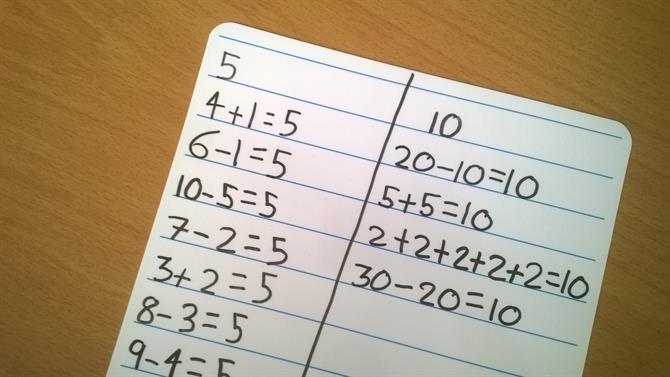 5
4+1=5
6-1=5
10-5=5
7-2=5
3+2=5
8-3=5
9-4=5
10
20-10=10
5+5=10
2+2+2+2+2=10
30-20=10